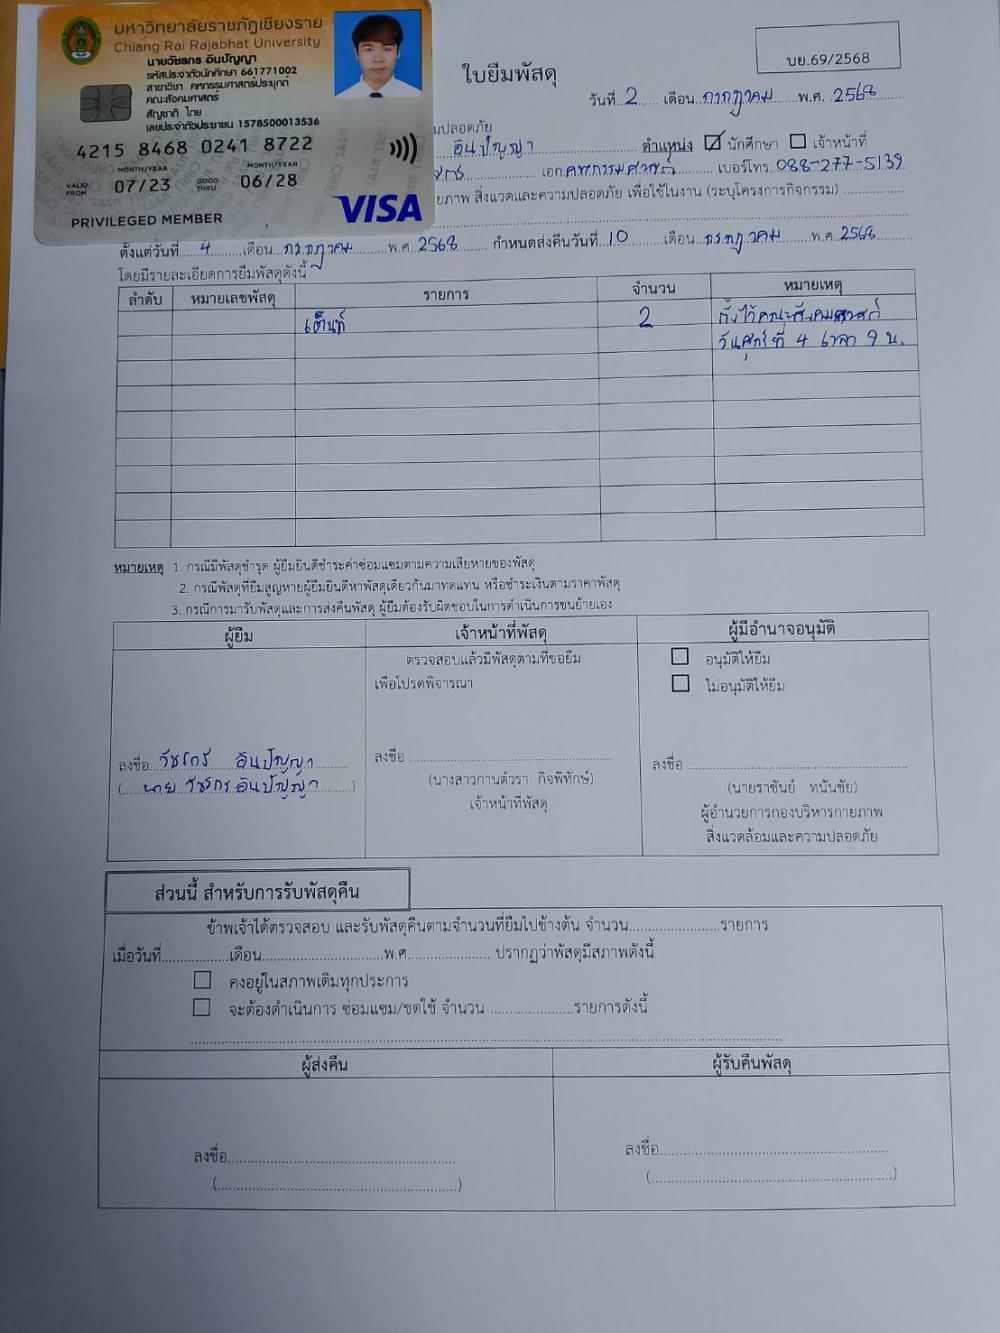 มหาวิทยาลัยราชภัฏเชียงราย
Chiang Rai Rajabhat University
นายวัชรกร อินปัญญา
รหัสประจำตัวนักศึกษา 661771002
สาขาวิชา คหกรรมศาสตร์ประยุกต์
คณะสังคมศาสตร์
สัญชาติ ไทย
เลขประจำตัวประชาชน 1578500013536
4215 8468 0241 8722
MONTH/YEAR MONTH/YEAR
VALID FROM 07/23 GOOD THRU 06/28
VISA
PRIVILEGED MEMBER
บย.69/2568
ใบยืมพัสดุ
วันที่ 2 เดือน กรกฎาคม พ.ศ. 2568
มปลอดภัย
อินปัญญา ตำแหน่ง ☑ นักศึกษา ☐ เจ้าหน้าที่
เอก คหกรรมศาสตร์ เบอร์โทร 088-277-5139
ยภาพ สิ่งแวดและความปลอดภัย เพื่อใช้ในงาน (ระบุโครงการกิจกรรม)
ตั้งแต่วันที่ 4 เดือน กรกฎาคม พ.ศ. 2568 กำหนดส่งคืนวันที่ 10 เดือน กรกฎาคม พ.ศ. 2568
โดยมีรายละเอียดการยืมพัสดุดังนี้
ลำดับ หมายเลขพัสดุ รายการ จำนวน หมายเหตุ
เต็นท์ 2 ตั้งไว้คณะสังคมศาสตร์
วันศุกร์ที่ 4 เวลา 9 น.
หมายเหตุ 1. กรณีมีพัสดุชำรุด ผู้ยืมยินดีชำระค่าซ่อมแซมตามความเสียหายของพัสดุ
2. กรณีพัสดุที่ยืมสูญหายผู้ยืมยินดีหาพัสดุเดียวกันมาทดแทน หรือชำระเงินตามราคาพัสดุ
3. กรณีการมารับพัสดุและการส่งคืนพัสดุ ผู้ยืมต้องรับผิดชอบในการดำเนินการขนย้ายเอง
ผู้ยืม เจ้าหน้าที่พัสดุ ผู้มีอำนาจอนุมัติ
ตรวจสอบแล้วมีพัสดุตามที่ขอยืม ☐ อนุมัติให้ยืม
เพื่อโปรดพิจารณา ☐ ไม่อนุมัติให้ยืม
ลงชื่อ วัชรกร อินปัญญา ลงชื่อ ลงชื่อ
(นาย วัชรกร อินปัญญา) (นางสาวกานต์วรา กิจพิทักษ์) (นายราชันย์ ทนันชัย)
เจ้าหน้าที่พัสดุ ผู้อำนวยการกองบริหารกายภาพ
สิ่งแวดล้อมและความปลอดภัย
ส่วนนี้ สำหรับการรับพัสดุคืน
ข้าพเจ้าได้ตรวจสอบ และรับพัสดุคืนตามจำนวนที่ยืมไปข้างต้น จำนวน รายการ
เมื่อวันที่ เดือน พ.ศ. ปรากฏว่าพัสดุมีสภาพดังนี้
☐ คงอยู่ในสภาพเดิมทุกประการ
☐ จะต้องดำเนินการ ซ่อมแซม/ชดใช้ จำนวน รายการดังนี้
ผู้ส่งคืน ผู้รับคืนพัสดุ
ลงชื่อ ลงชื่อ
( ) ( )